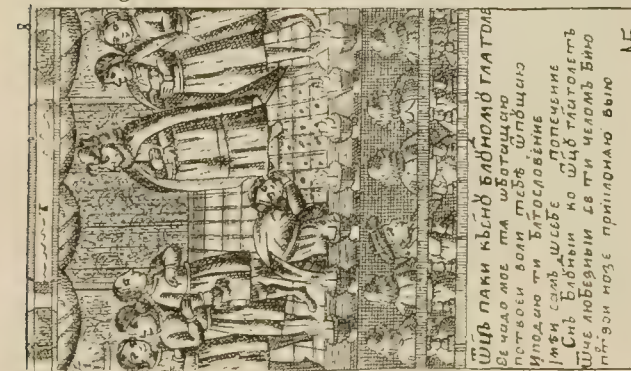 ѾЦЪ ПАКИ КЪСНꙋ БЛꙋНОМꙋ ГЛАГОЛЕ
СЕ ЧАДО МОЕ ТѦ ѠБОГАЩАЮ
ПОТВОЕИ ВОЛИ ТЕБѢ ѾПꙋЩАЮ
ИПОДАЮ ТИ БЛГОСЛОВЕНИЕ
ІМѢИ САМЪ ѠСЕБЕ ПОПЕЧЕНИЕ
СНЪ БЛꙋНЫИ КО ѾЦꙋ ГЛАГОЛЕТЪ
ѾЧЕ ЛЮБЕЗНЫИ СЕ ТИ ЧЕЛОМЪ БИЮ
НОЗЕ ПРИКЛОНАЮ ВЫЮ